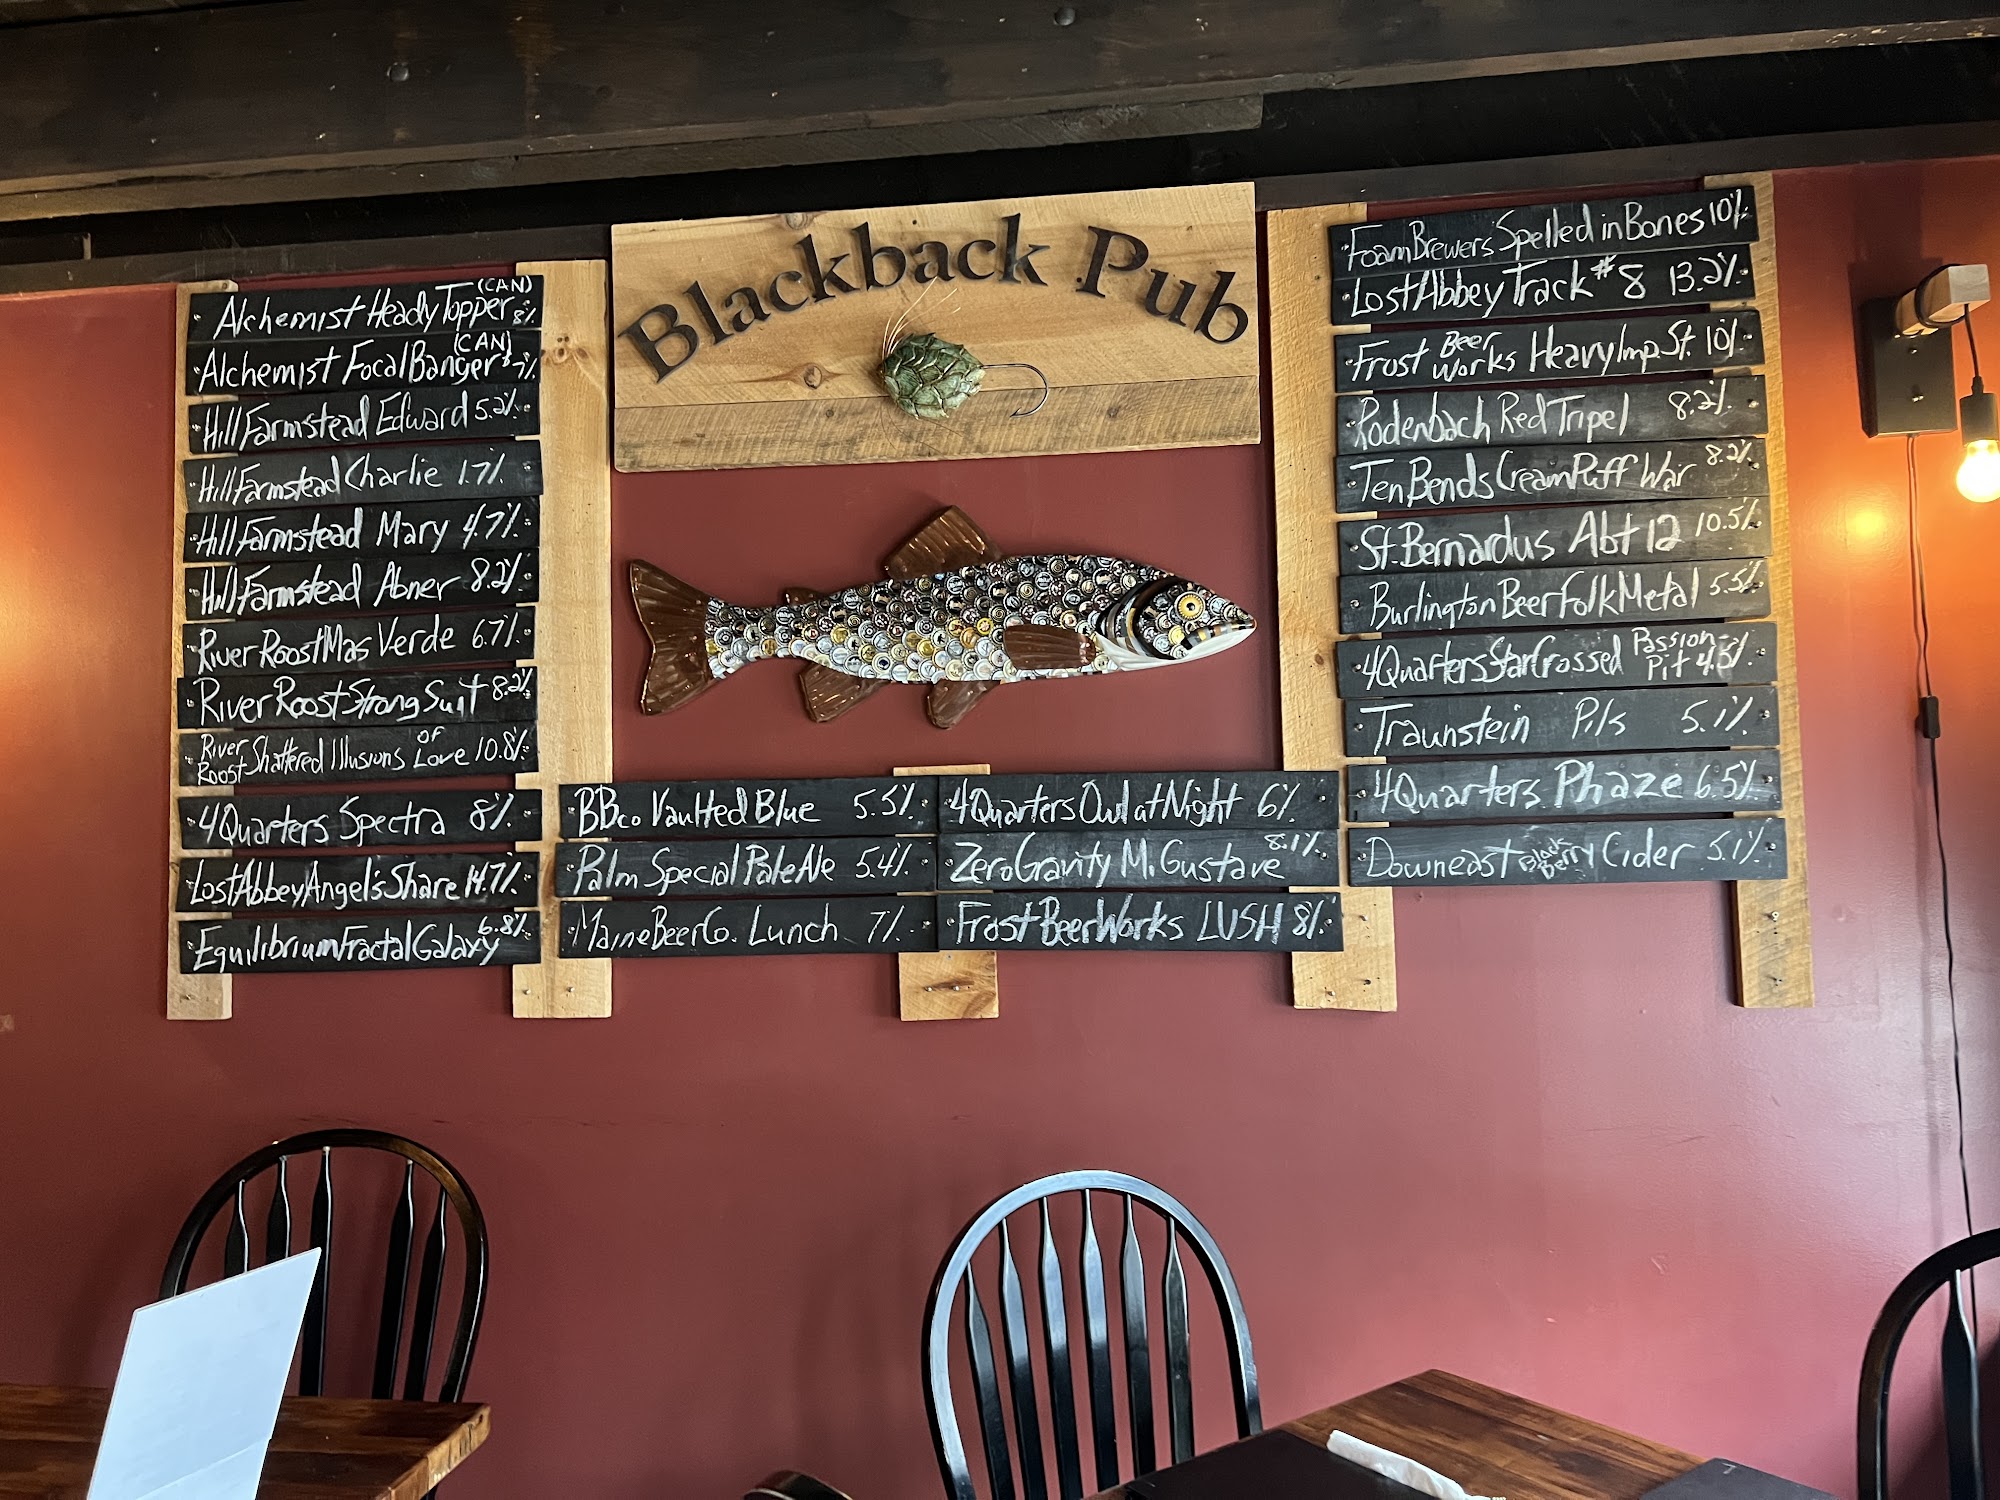 Blackback Pub
Alchemist Heady Topper (CAN) 8%
Alchemist Focal Banger (CAN) 7%
Hill Farmstead Edward 5.2%
Hill Farmstead Charlie 1.7%
Hill Farmstead Mary 4.7%
Hill Farmstead Abner 8.2%
River Roost Mas Verde 6.7%
River Roost Strong Suit 8.2%
River Roost Shattered Illusions of Love 10.8%
4Quarters Spectra 8%
Lost Abbey Angel's Share 14.7%
Equilibrium Fractal Galaxy 6.8%
BBco Vaulted Blue 5.5%
Palm Special Pale Ale 5.4%
Maine Beer Co. Lunch 7%
4Quarters Owl at Night 6%
Zero Gravity M. Gustave 8.1%
Frost Beer Works LUSH 8%
Foam Brewers Spelled in Bones 10%
Lost Abbey Track #8 13.2%
Frost Beer Works Heavy Imp. St. 10%
Rodenbach Red Tripel 8.2%
Ten Bends Cream Puff War 8.2%
St. Bernardus Abt 12 10.5%
Burlington Beer Folk Metal 5.5%
4Quarters Star Crossed Passion Pit 4.5%
Traunstein Pils 5.1%
4Quarters Phaze 6.5%
Downeast Black Berry Cider 5.1%